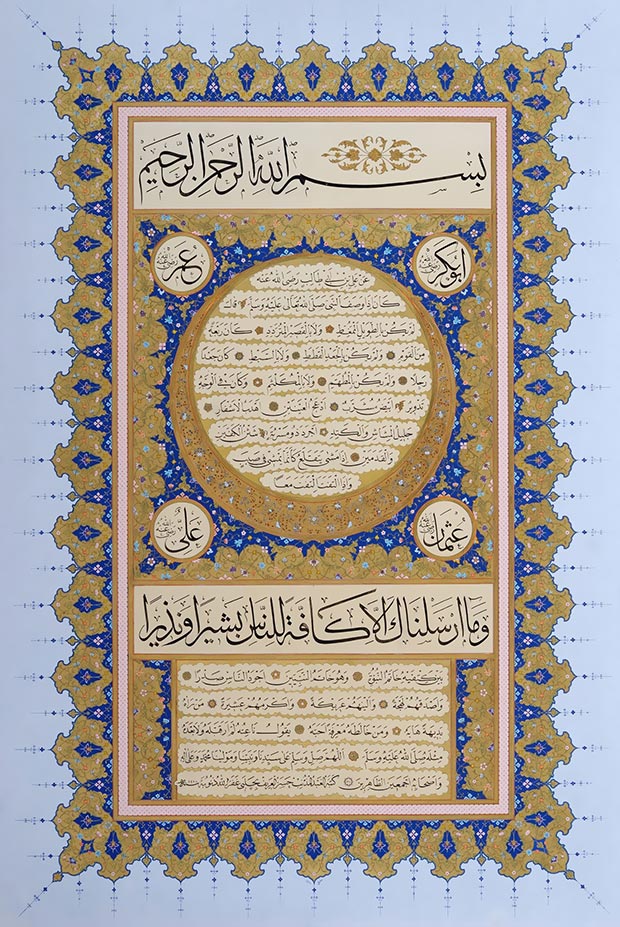 بسم الله الرحمن الرحيم
ابو بكر رضي الله عنه
عمر رضي الله عنه
عن علي بن ابي طالب رضى الله عنه
كان اذا وصف النبى صلى الله تعالى عليه وسلم قال
لم يكن بالطويل الممغط ولا بالقصير المتردد كان ربعة
من القوم ولم يكن بالجعد القطط ولا بالسبط كان جعدا
رجلا ولم يكن بالمطهم ولا بالمكلثم وكان فى الوجه
تدوير ابيض مشرب ادعج العينين اهدب الاشفار
جليل المشاش والكتد اجرد ذو مسربة شثن الكفين
والقدمين اذا مشى يتقلع كأنما يمشى فى صبب
واذا التفت التفت معا
عثمان رضي الله عنه
علي رضي الله عنه
وما ارسلناك الا كافة للناس بشيرا ونذيرا
بين كتفيه خاتم النبوة وهو خاتم النبيين اجود الناس صدرا
واصدقهم لهجة والينهم عريكة واكرمهم عشيرة من رآه
بديهة هابه ومن خالطه معرفة احبه يقول ناعته لم ار قبله ولا بعده
مثله صلى الله عليه وسلم اللهم صل وسلم على سيدنا ونبينا ومولينا محمد وعلى آله
واصحابه اجمعين الطاهرين كتبه حسن چلبي غفر الله ذنوبه